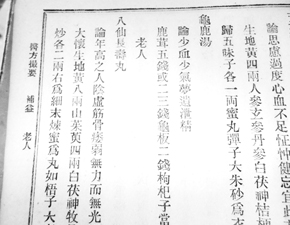 論思慮過度心血不足怔忡健忘宜
生地黃四兩人參玄參丹參白茯神桔梗
歸五味子各一両蜜丸彈子大朱砂爲衣
龜鹿湯
論少血少氣夢遺精
鹿茸五錢或二三錢龜板二錢枸杞子當
老人
八仙長壽丸
論年高之人陰虛筋骨痿弱無力而無光
大懷生地黃八兩山茱萸四兩白茯神牧
炒各二兩右爲細末煉蜜爲丸如梧子大
濟方撮要 補益 老人